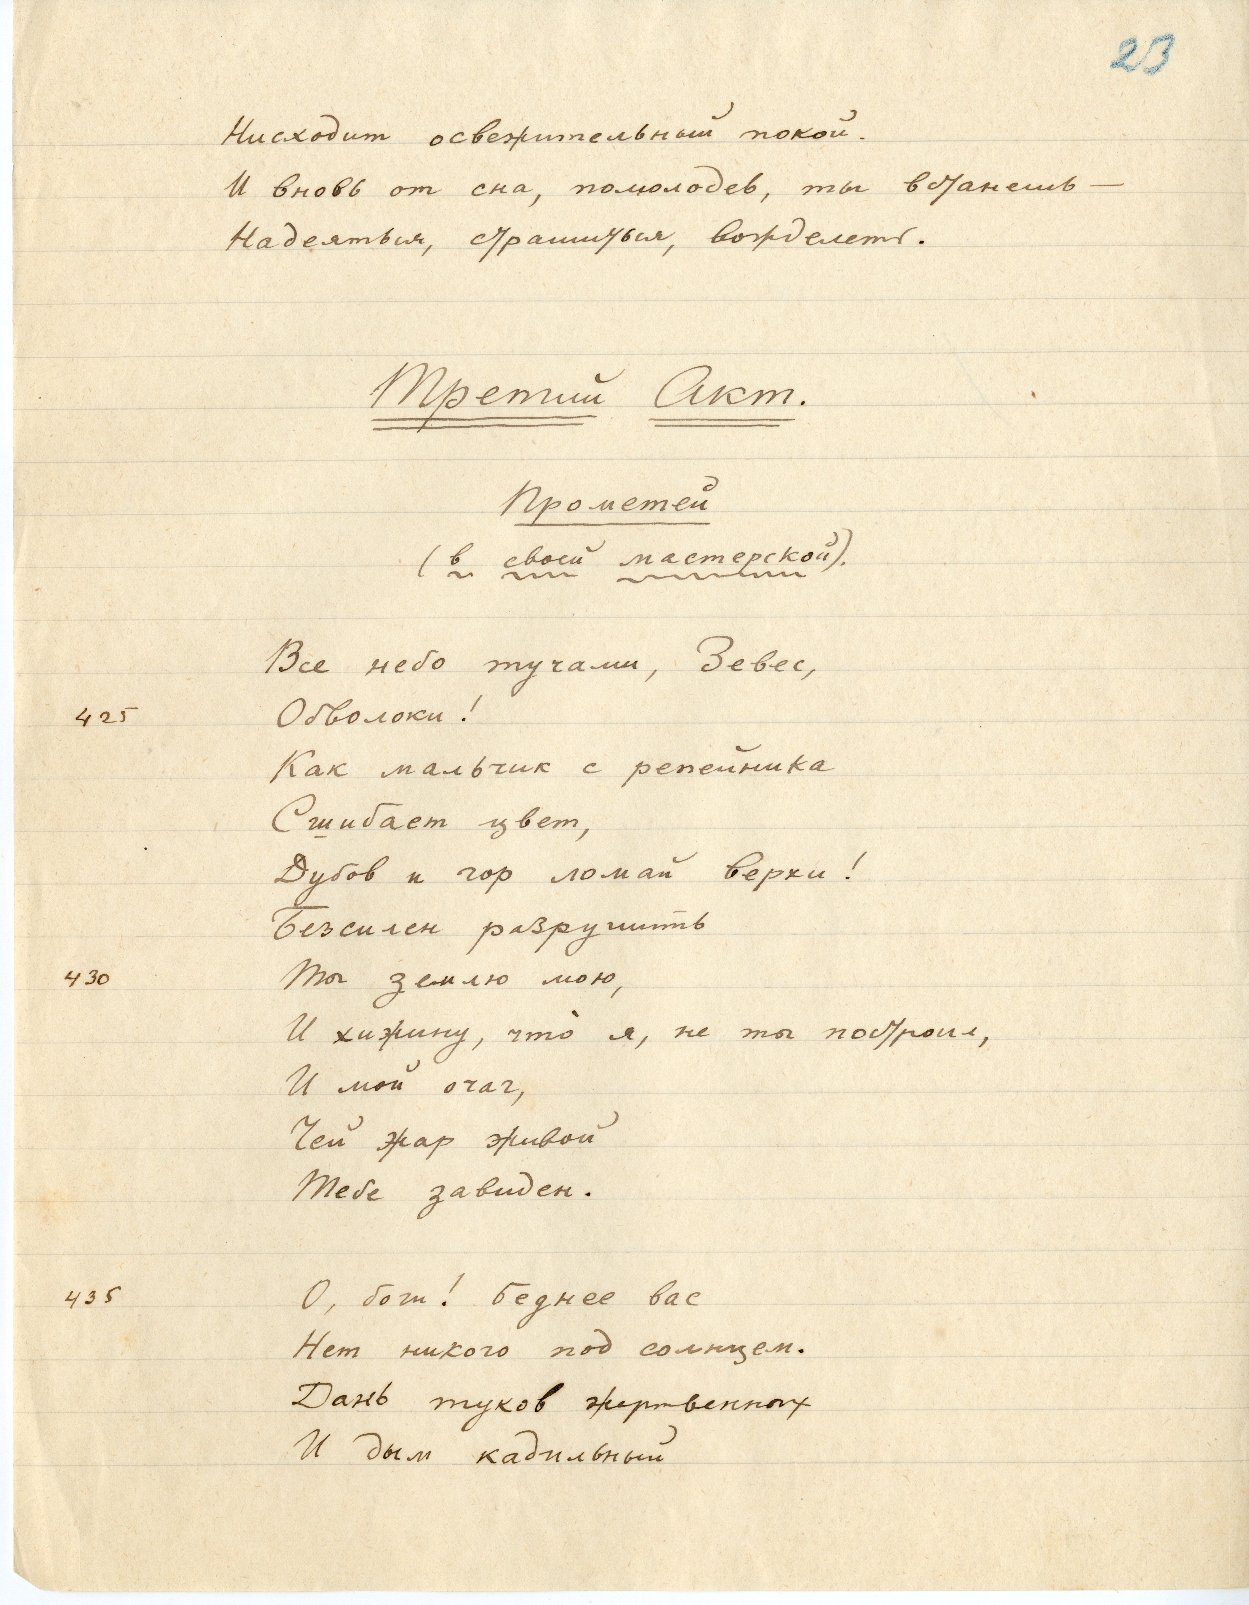 23
Нисходит освежительный покой.
И вновь от сна, помолодев, ты встанешь —
Надеяться, страшиться, вожделеть.
Третий Акт.
Прометей
(в своей мастерской).
Все небо тучами, Зевес,
425 Обволоки!
Как мальчик с репейника
Сшибает цвет,
Дубов и гор ломай верхи!
Безсилен разрушить
430 Ты землю мою,
И хижину, что я, не ты построил,
И мой очаг,
Чей жар живой
Тебе завиден.
435 О, боги! Беднее вас
Нет никого под солнцем.
Дань туков жертвенных
И дым кадильный